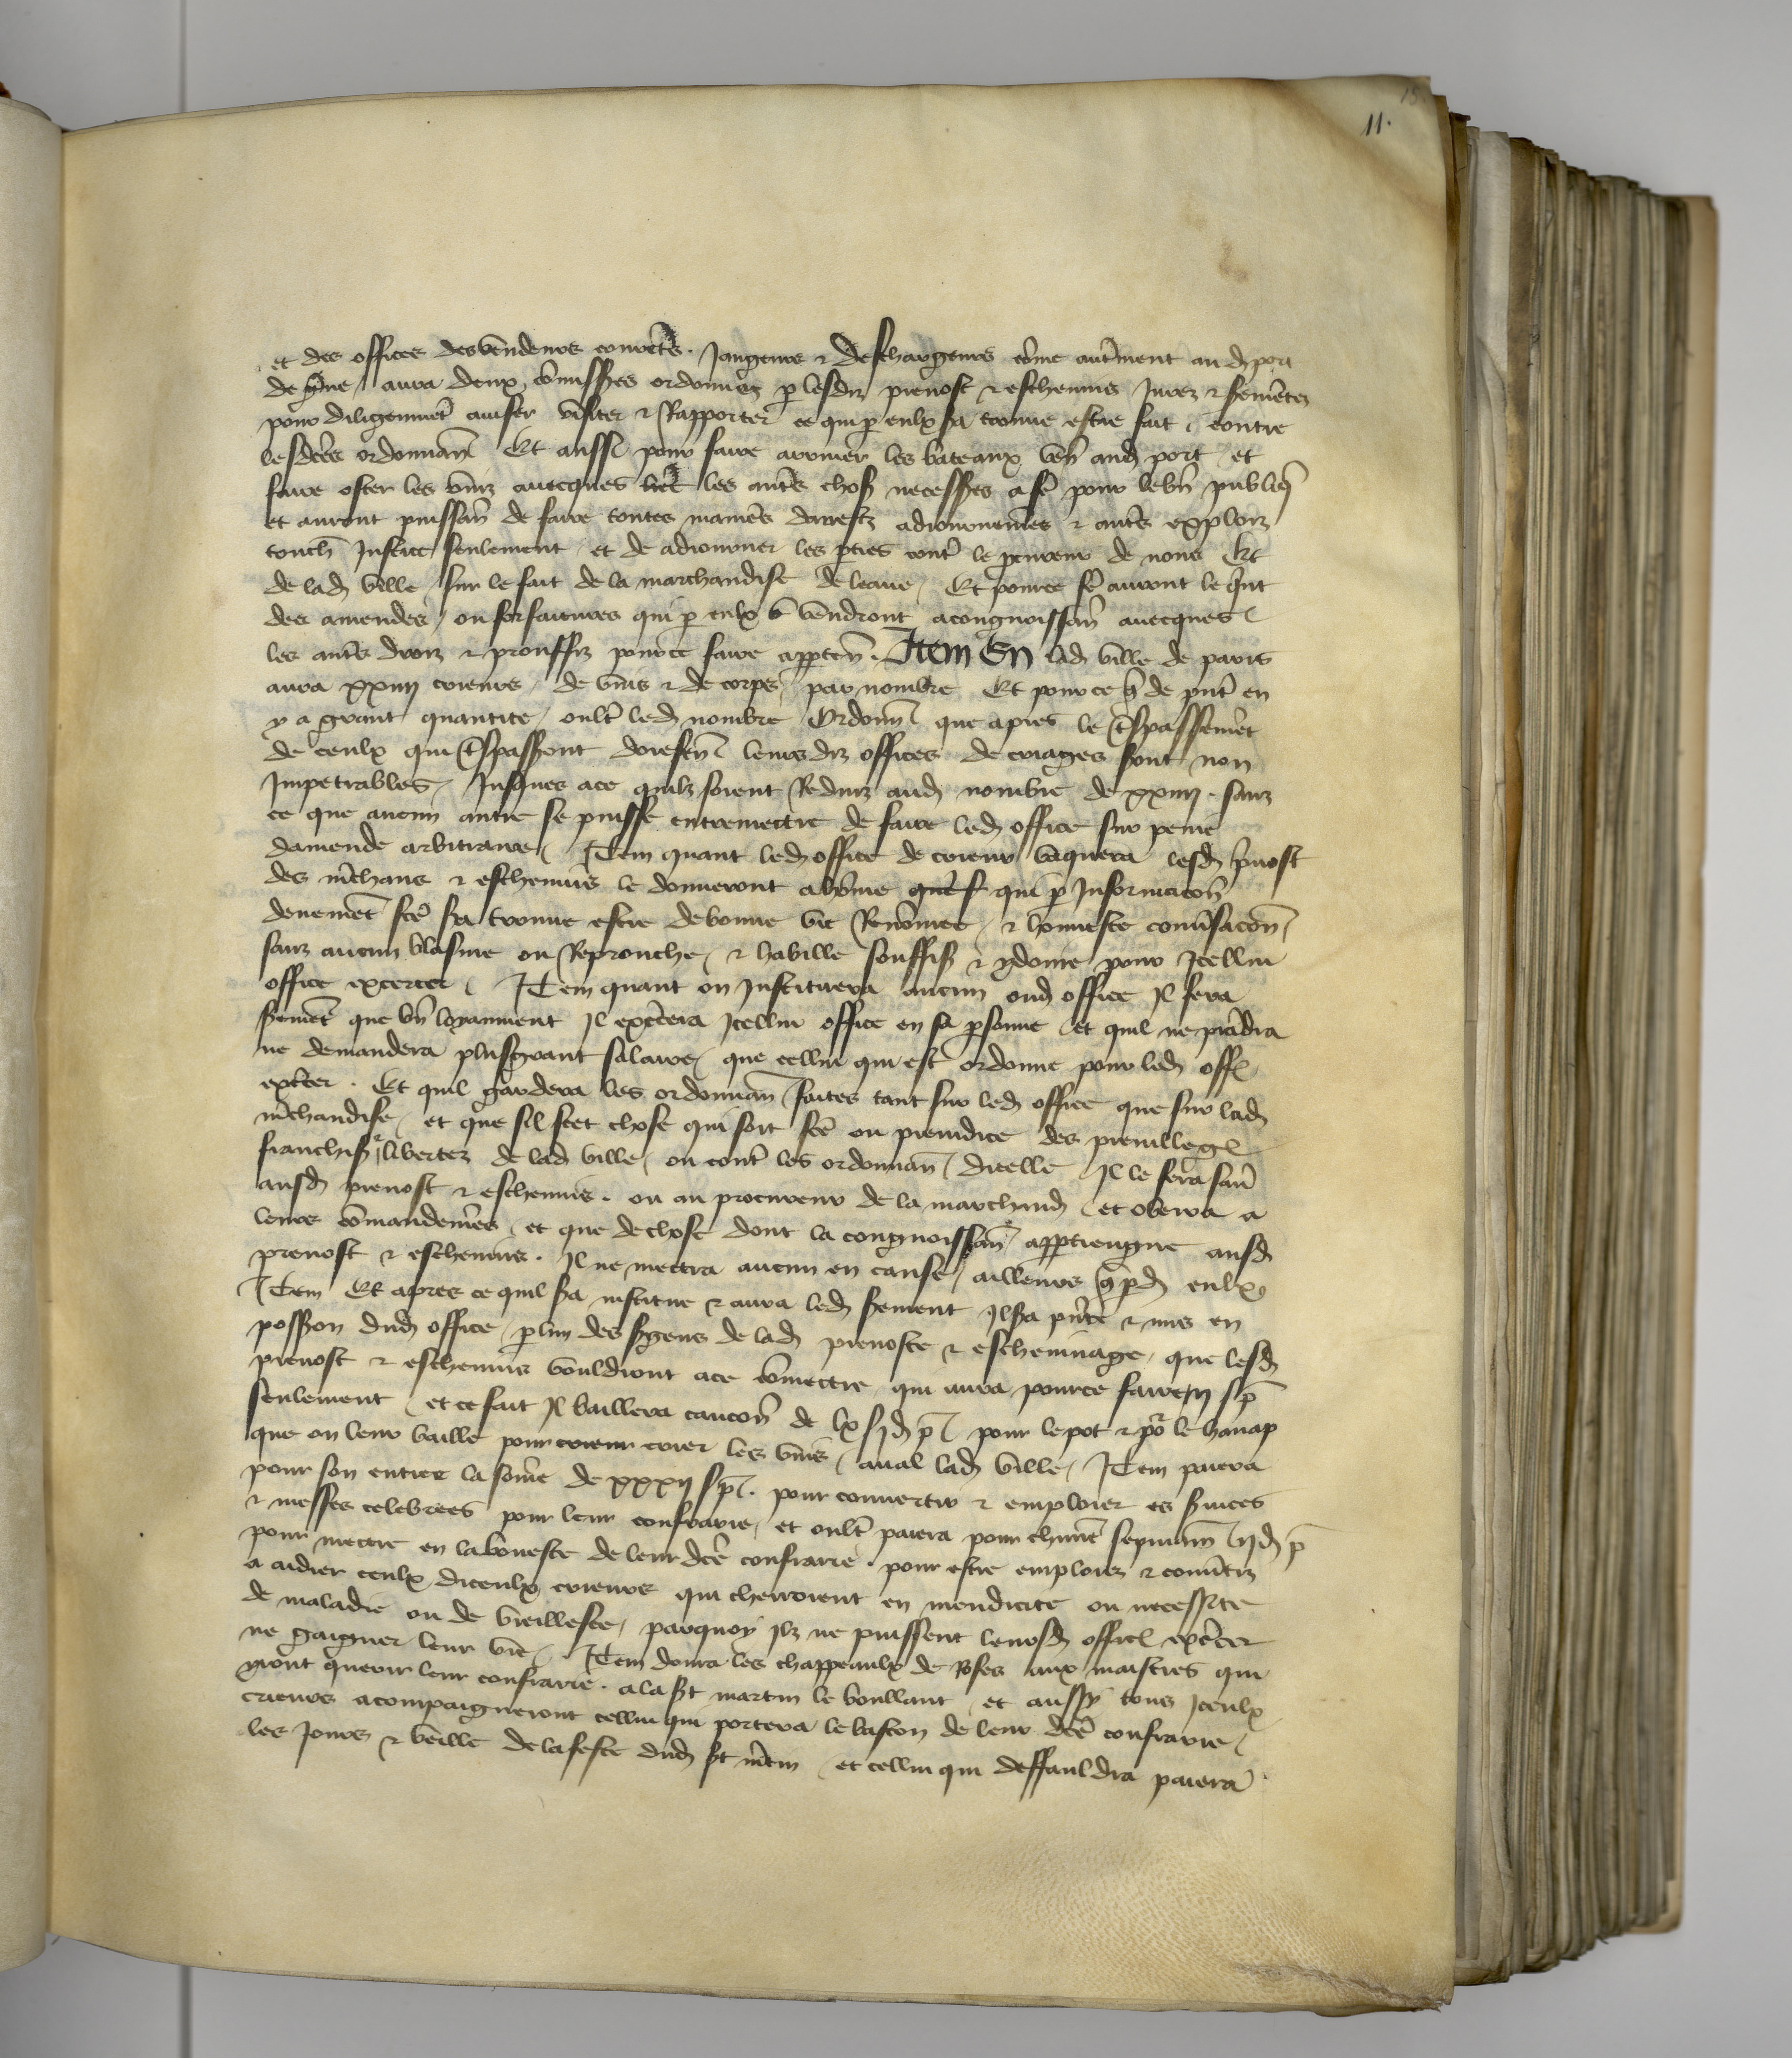 15.
11.
et des offices des vendeurs courets. Jaugeurs & deschargeurs cõme autr̃ment aud port
de auua deux cõmissr̃es ordonnez p lesdiz preuost & escheuins Jurez & serm̃tez
pour diligemmẽt auiser visiter & Rapporter ce qui p eulx sa trouue estre fait contre
lesdc̃es ordonnãn Et aussi pour faire arriuer les bateaux vẽn aud port et
faire oster les vuiz auecques les autr̃s chos necessr̃es a fẽ pour le bñ publiq
et auront puissãn de faire toutes manier̃s darrestz adiournemẽs & autr̃s exploiz
touch Justice seulement et de adiourner les pties contr̃ le procureur de nous Et
de lad ville sur le fait de la marchandise de leaue Et pource fẽ auront le qnt
des amendes ou forfaitures qui p eulx vendront a congnoissãn auecques
les autr̃s droiz & prouffiz pour ce faire apptẽn. Item En lad ville de paris
aura xxiiij crieurs de vins & de corps par nombre Et pour ce q de pñt en
y a grant quantite oultr̃ led nombre Ordonñ que apres le tr̃spassemẽt
de ceulx qui tr̃spassront doresen̄ leurs diz offices de criages sont non
Impetrables Jusques ace quilz soient Reduiz aud nombre de xxiiij. sanz
ce que aucun autre se puisse entremettre de faire led office sur peine
damende arbitraire Item quant led office de crieur vaquera lesd p̃uost
des m̃chans & escheuins le donneront a hõme quest qui p Informacõn
deuemẽt fc̃e sa trouue estre de bonne vie Renõmee & honneste conũsacõn
sanz aucun blasme ou Reprouche & habille souffis & ydoine pour Icellui
office excercer Item quant on Instituera aucun oud office Il fera
sermẽt que bñ loyaument Il exc̃cera Icellui office en sa psonne et quil ne prãdra
ne demandera plusgrant salaire que cellui qui est ordonne pour led off
exc̃cer. Et quil gardera les ordonnãn faites tant sur led office que sur lad
m̃chandise et que sil scet chose qui soit fc̃e ou preiudice des priuilleg
franchis & libertez de lad ville ou contr̃ les ordonnãn dicelle Il le fera sau
ausd preuost & escheuins. ou au procureur de la marchand et obeira a
leurs cõmandemẽs et que de chose dont la congnoissãn apptiengne ausd
preuost & escheuins. Il ne mettra aucun en cause ailleurs q pd eulx
Item Et apres ce quil sa institue & aura led serment Il sa pñte & mis en
possion dud office p lun des sgens de lad preuoste & escheuinage que lesd
preuost & escheuins vouldront ace cõmettre qui aura pource faire ij s p
seulement et ce fait Il baillera caucõn de lx s j d p pour le pot & pr̃ le hanap
que on leur baille pour crieur crier les vins aual lad ville Item paiera
pour son entree la sõme de xxxij s p. pour conuertir & emploier es suices
& messes celebrees pour leur confrarie et oultr̃ paiera pour chũnẽ sepmãn ij d p
pour mettre en la boueste de leur dc̃e confrarie. pour estre emploiez & conũtiz
a aidier ceulx diceulx crieurs qui cherroient en mendicite ou necessite
de maladie ou de vieillesce parquoy Ilz ne puissent leursd offic exc̃cer
ne gaigner leur vie Item donra les chappeaulx de Roses aux maistres qui
yront querir leur confrarie. a la st martin le boullant et aussy tous Iceulx
crieurs acompaigneront cellui qui portera le baston de leur dc̃e confrarie
les Jours & veille de la feste dud st m̃tin et cellui qui deffauldra paiera